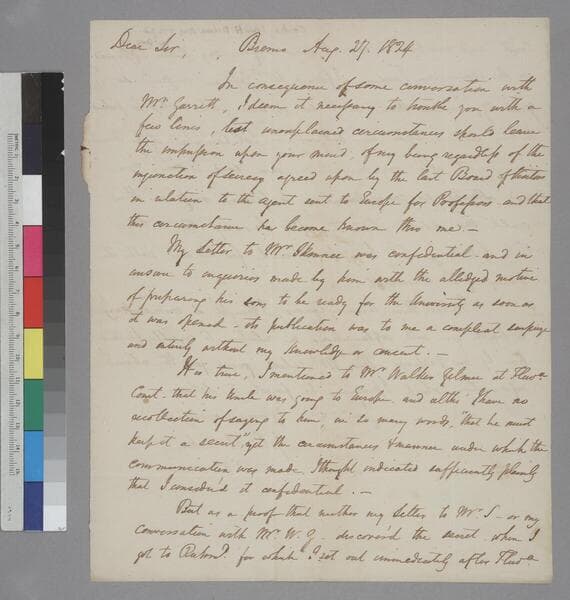 Dear Sir, Bremo Aug. 27. 1824
In consequence of some conversation with
Mr. Garrett, I deem it necessary to trouble you with a
few lines, lest unexplained circumstances should leave
the impression upon your mind, of my being regardless of the
injunction of secrecy agreed upon by the last Board of Visitors
in relation to the agent sent to Europe for Professors and that
this circumstance has become known thro me.—
My Letter to Mr. was confidential and in
answer to inquiries made by him with the alledged motive
of preparing his sons to be ready for the University as soon as
it was opened — its publication was to me a compleat surprize
and entirely without my knowledge or consent.—
It is true, I mentioned to Mr. Walker Gilmer at Fluva
Court. that his Uncle was going to Europe, and altho' I have no
recollection of saying to him, in so many words, "that he must
keep it a secret", yet the circumstances & manner under which the
communication was made, I thought indicated sufficiently plainly
that I consider'd it confidential.—
But as a proof that neither my Letter to Mr. S— or my
conversation with Mr. W. G. discover'd the secret. when I
got to Richmd. for which I set out immediately after Fluva